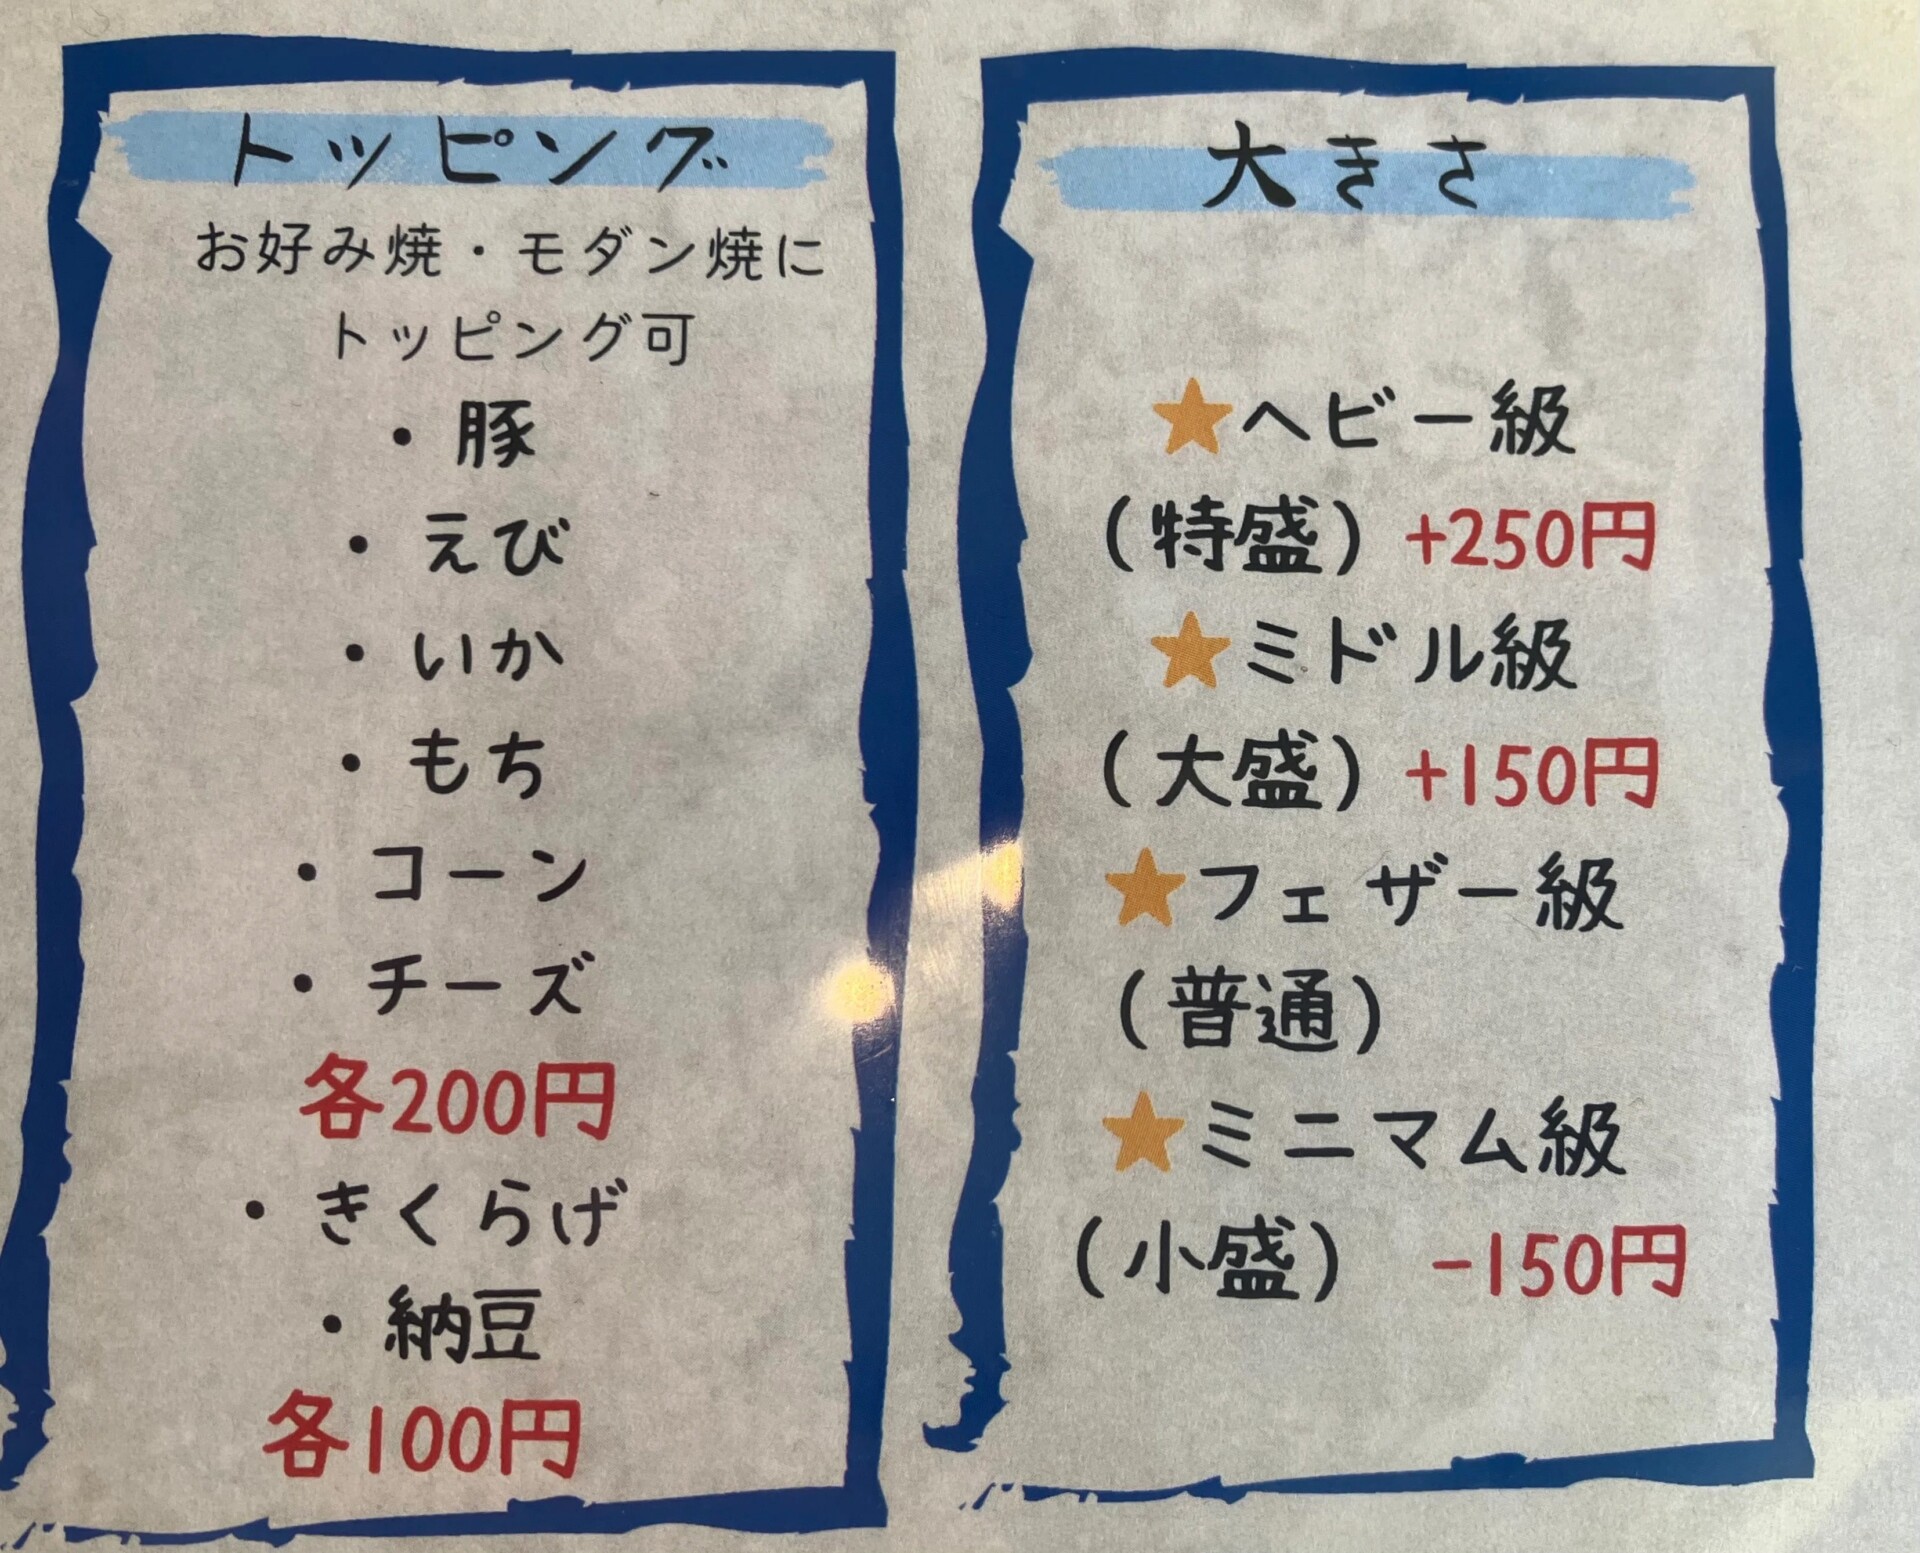 トッピング
お好み焼・モダン焼に
トッピング可
・豚
・えび
・いか
・もち
・コーン
・チーズ
各200円
・きくらげ
・納豆
各100円
大きさ
★ヘビー級
(特盛) +250円
★ミドル級
(大盛) +150円
★フェザー級
(普通)
★ミニマム級
(小盛) -150円